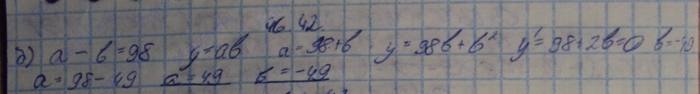 46 42
б) a - b = 98 y = ab a = 98 + b y = 98b + b² y' = 98 + 2b = 0 b = -49
a = 98 - 49 a = 49 b = -49